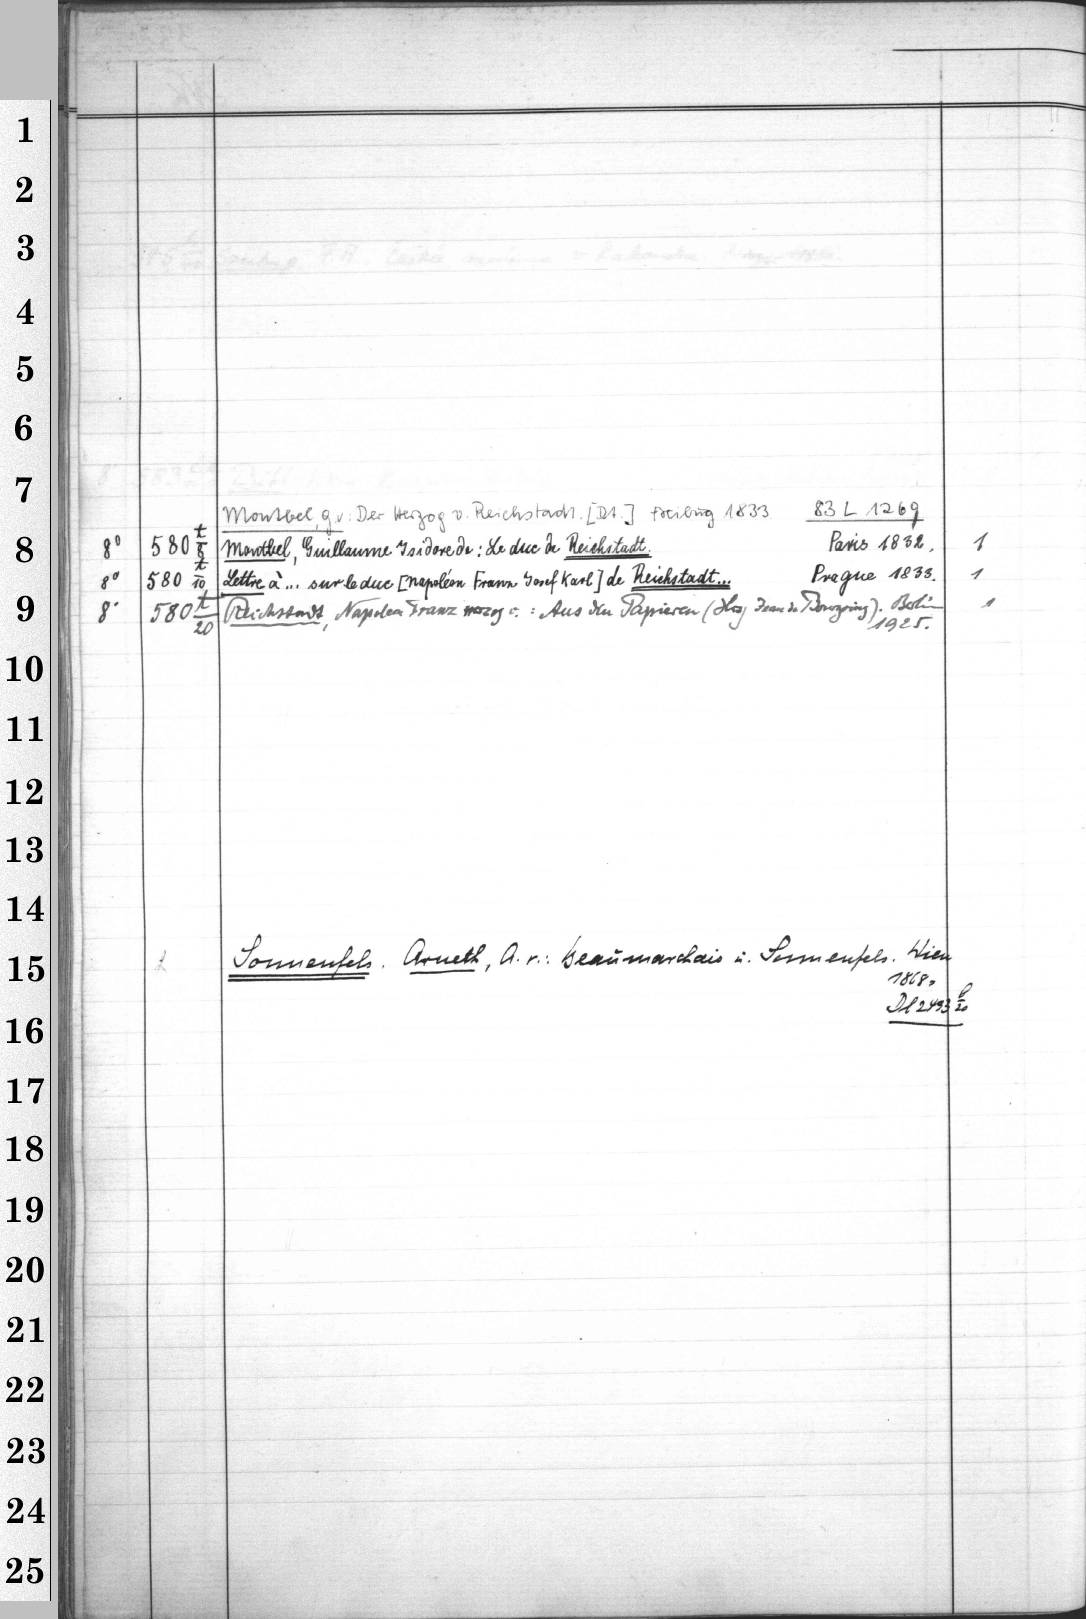 1
2
3
4
5
6
7
Montbel, g.v: Der Herzog v. Reichstadt. [Dt.] Freiburg 1833 83 L 1269
8
8° 580 t/8 Montbel, Guillaume Isidore de: Le duc de Reichstadt. Paris 1832. 1
8° 580 t/10 Lettre à ... sur le duc [Napoléon Franz Josef Karl] de Reichstadt... Prague 1833. 1
9
8° 580 t/20 Reichstadt, Napoleon Franz Herzog v.: Aus den Papieren (Hsg Jean de Bourgoing). Berlin 1
1925.
10
11
12
13
14
15
Sonnenfels. Arneth, A. v.: Beaumarchais u. Sonnenfels. Wien
1868.
2493 /20
16
17
18
19
20
21
22
23
24
25